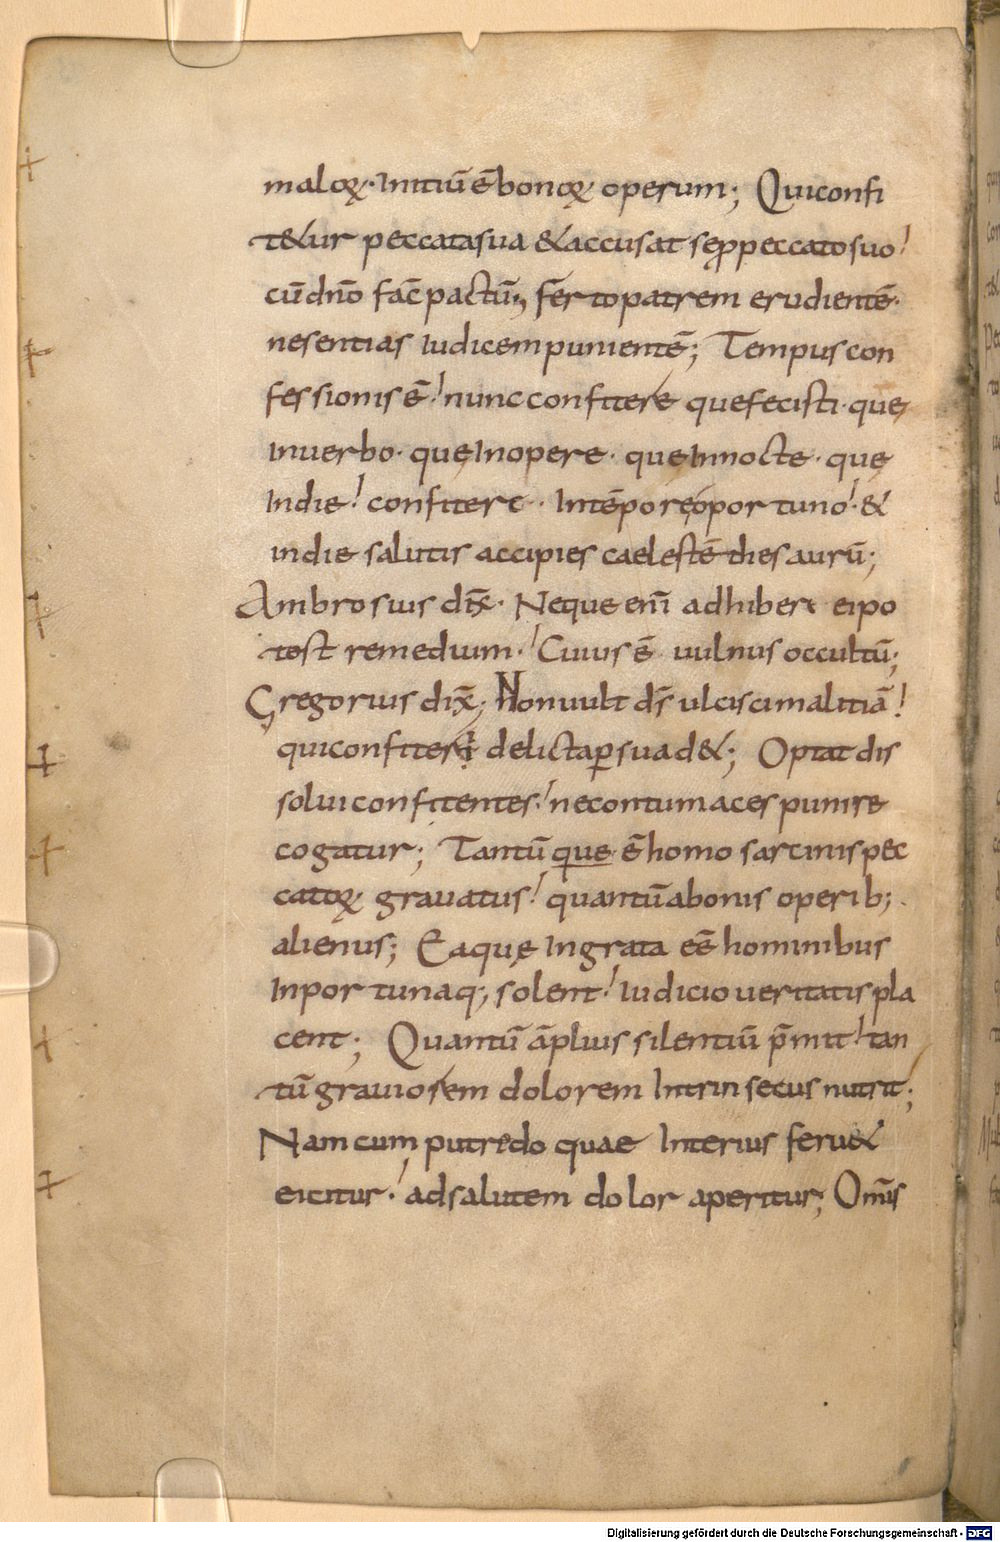 maloꝝ· Initiū ē bonoꝝ operum; Qui confi
t&ur peccata sua & accusat se ꝓ peccato suo!
cū dn̄o fac̄ pactū, fer to patrem erudientē·
ne sentias iudicem punientē; Tempus con
fessionis ē! nunc confitere que fecisti· que
In uerbo· que In opere· que In nocte· que
In die! confitere·· In tēpore opor tuno! &
in die salutis accipies caelestē thesaurū;
Ambrosius dix̄· Neque eni᷉ adhiber& ei po
tost remedium·! Cuius ē uulnus occultū;
Gregorius dix̄; Non uult ds̄ ulcisci malitiā!
qui confiteri delicta ꝑsuad&; Optat dis
solui confitentes! ne contumaces punire
cogatur; Tantū que ē homo sarcinis pec
catoꝝ grauatus! quantū a bonis operib;
alienus; Eaquę Ingrata eē hominibus
Inpor tunaq; solent! Iudicio ueritatis pla
cent; Quantū āplius silentiū p̄mit! tan
tū grauiorem dolorem Intrinsecus nutrit;
Nam cum putredo quae Interius feru&
eicitur! ad salutem dolor aperitur; Om̄is
Digitalisierung gefördert durch die Deutsche Forschungsgemeinschaft - DFG